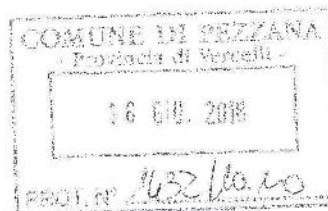 COMUNE DI PEZZANA
- Provincia di Vercelli -
16 GIU. 2018
PROT. N° 1432/10.10